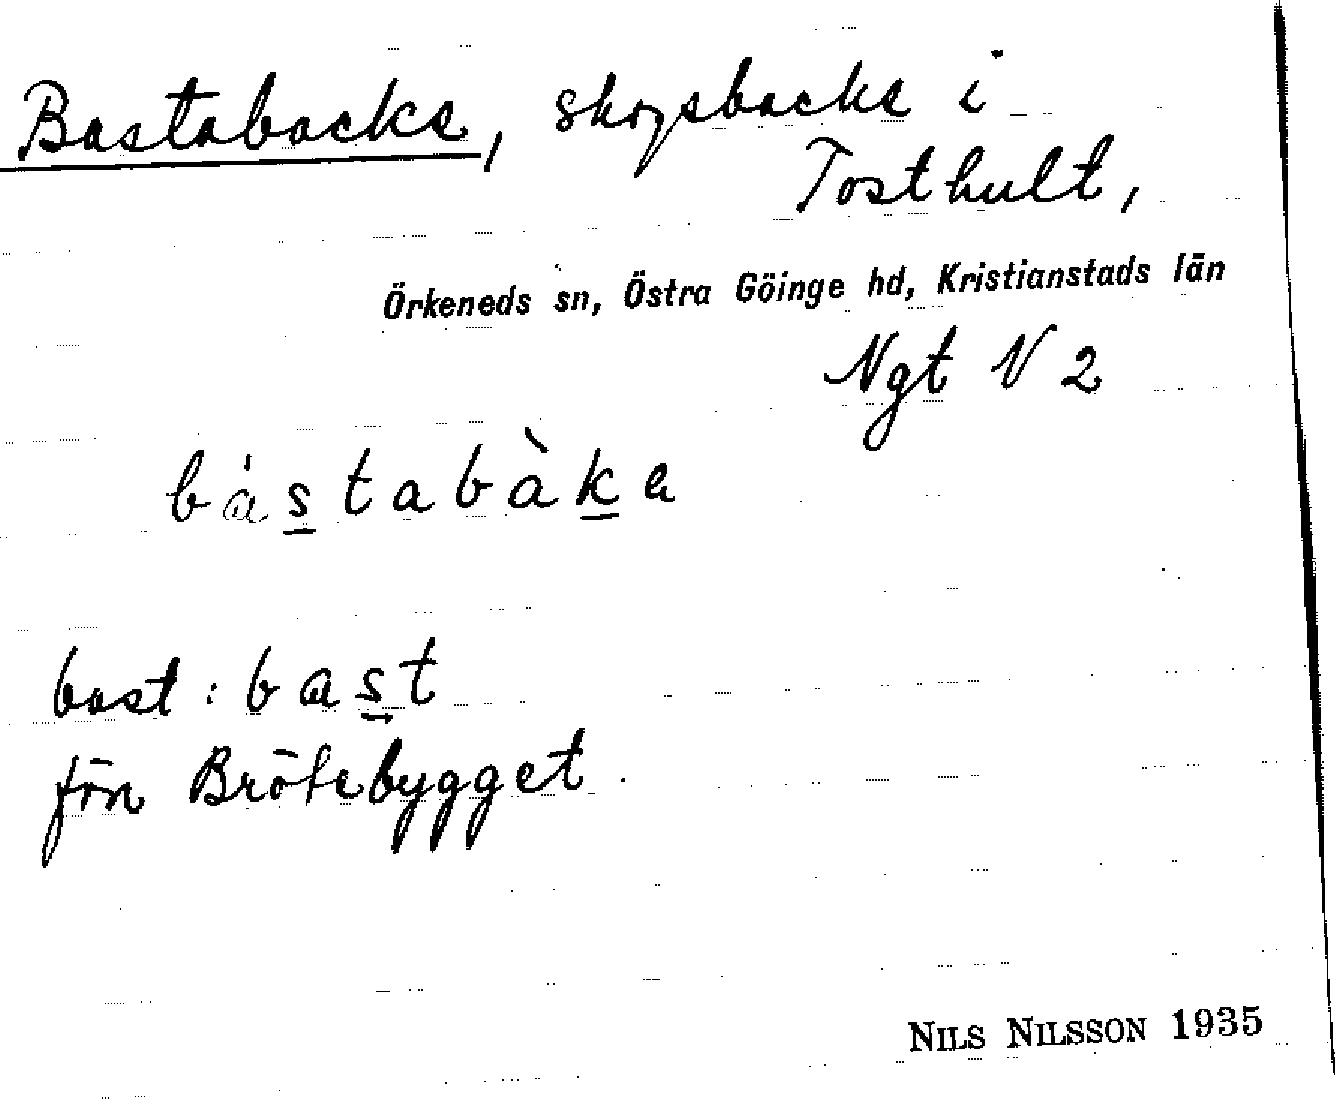 Bastabacke, skogsbacke i
Tosthult,
Örkeneds sn, Östra Göinge hd, Kristianstads län
Ngt V 2
bástabàka
bast : bast
från Brötebygget.
NILS NILSSON 1935